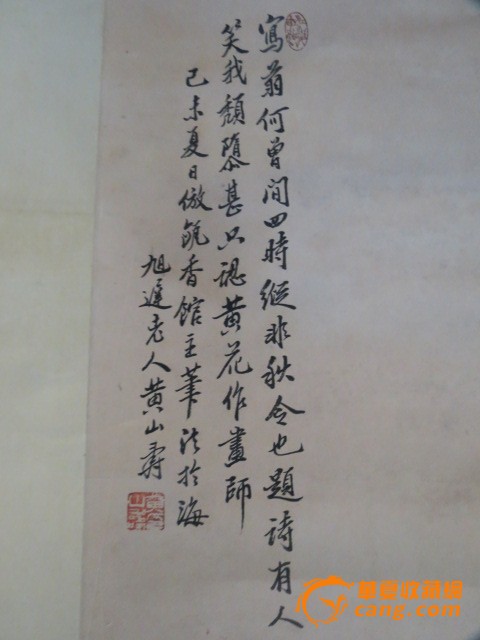 寫菊何曾間四時縱非秋令也題詩有人
笑我頹隳甚只認黃花作畫師
己未夏日倣甌香館主筆法於海
旭遲老人黃山壽
華夏收藏網
cang.com